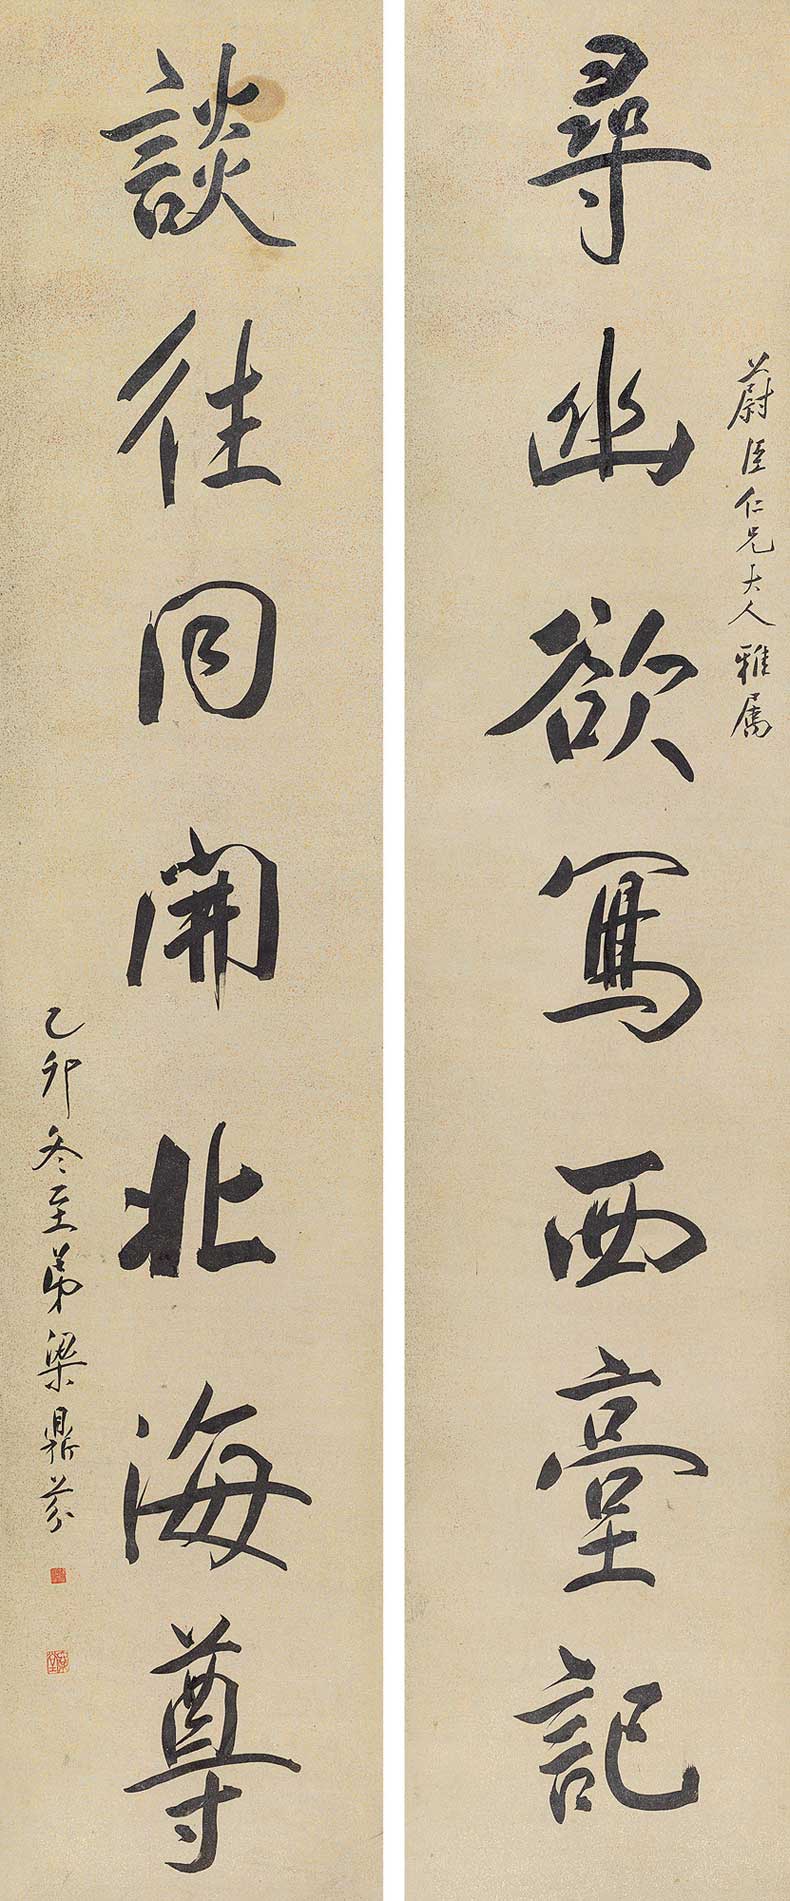 蔚臣仁兄大人雅属
尋幽欲寫西臺記
談往同開北海尊
乙卯冬至弟梁鼎芬